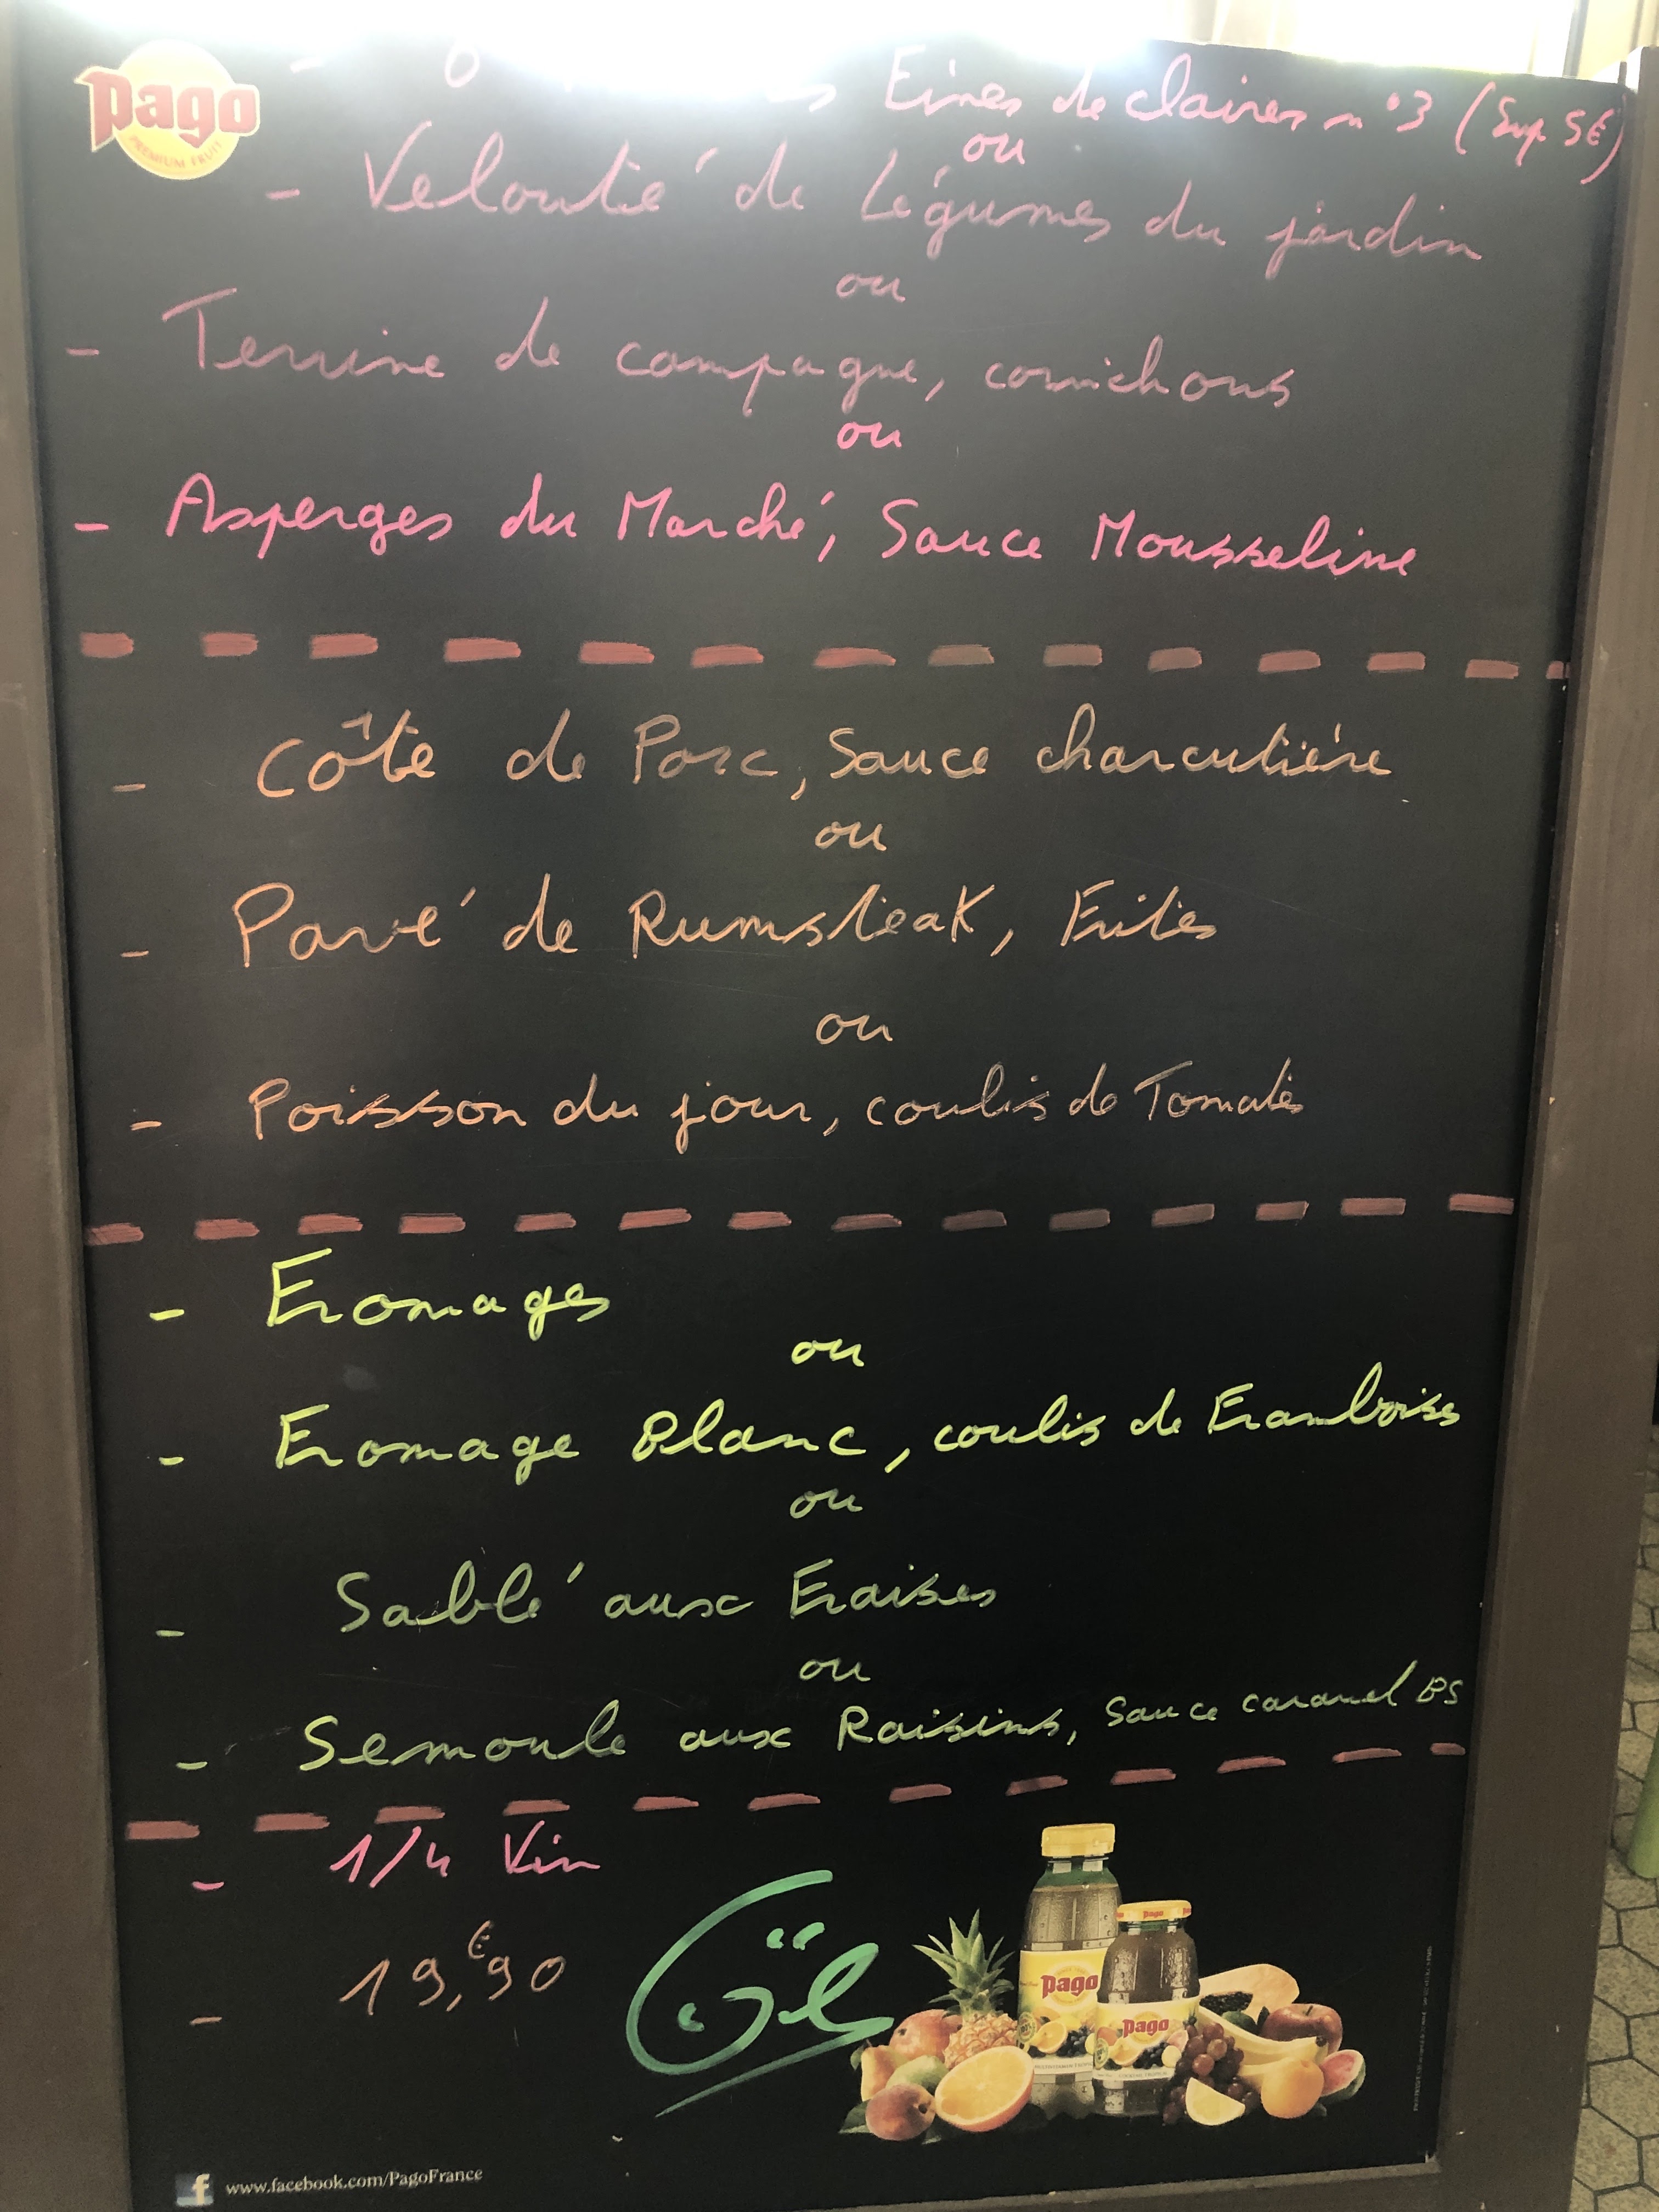 pago
PREMIUM FRUIT
Fines de claires n°3 (Sup 5€)
ou
- Velouté de Légumes du jardin
ou
- Terrine de campagne, cornichons
ou
- Asperges du Marché, Sauce Mousseline
- Côte de Porc, Sauce charcutière
ou
- Pavé de Rumsteak, Frites
ou
- Poisson du jour, coulis de Tomates
- Fromages
ou
- Fromage Blanc, coulis de Framboises
ou
- Sablé aux Fraises
ou
- Semoule aux Raisins, Sauce caramel BS
- 1/4 Vin
- 19,€90
pago
pago
www.facebook.com/PagoFrance